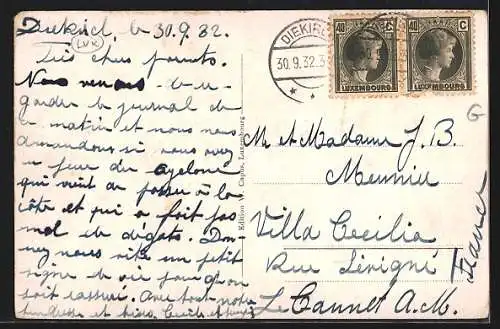 Diekirch, le 30.9.32.
(LUX)
Très chers parents.
Nous venons de re-
garder le journal de
ce matin et nous nous
demandons si vous avez
eu peur du cyclone
qui vient de passer à la
côte et qui a fait pas
mal de dégats. Don-
nez nous vite un petit
signe de vie pour qu'on
soit rassuré. Avec toute notre
tendresse et bises, Cécile et
Edition W. Capus, Luxembourg
DIEKIRCH
30.9.32.3
* *
40 C
LUXEMBOURG
40 C
LUXEMBOURG
G
M et Madame J. B.
Meunier
Villa Cecilia
Rue Sévigné
Le Cannet A.M.
France